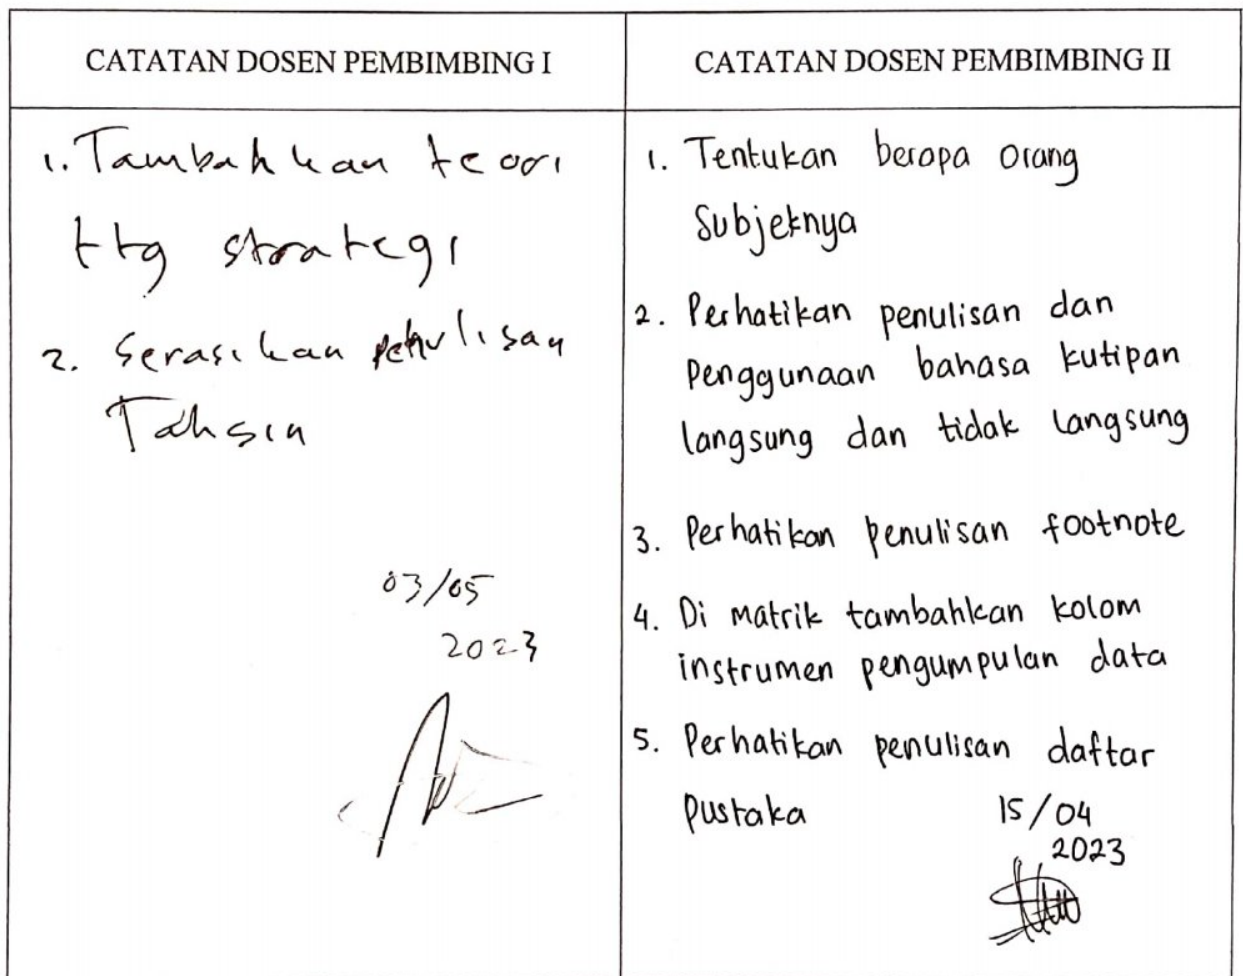 CATATAN DOSEN PEMBIMBING I
1. Tambahkan teori
ttg strategi
2. Serasikan penulisan
Tahsin
03/05
2023
CATATAN DOSEN PEMBIMBING II
1. Tentukan berapa orang
Subjeknya
2. Perhatikan penulisan dan
Penggunaan bahasa kutipan
langsung dan tidak langsung
3. Perhatikan penulisan footnote
4. Di matrik tambahkan kolom
instrumen pengumpulan data
5. Perhatikan penulisan daftar
Pustaka
15/04
2023